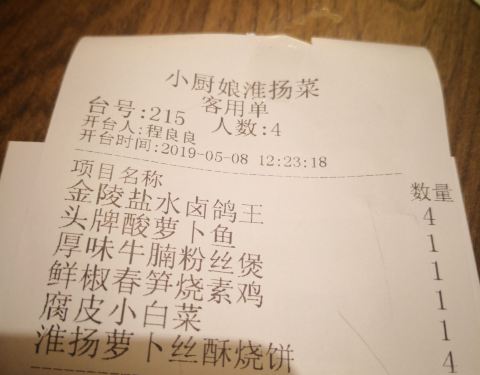 小厨娘淮扬菜
客用单
台号:215 人数:4
开台人:程良良
开台时间:2019-05-08 12:23:18
项目名称 数量
金陵盐水卤鸽王 4
头牌酸萝卜鱼 1
厚味牛腩粉丝煲 1
鲜椒春笋烧素鸡 1
腐皮小白菜 1
淮扬萝卜丝酥烧饼 4